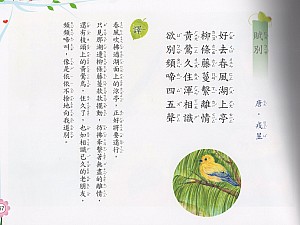 賦別
唐．戎昱
好去春風湖上亭
柳條藤蔓繫離情
黃鶯久住渾相識
欲別頻啼四五聲
譯
春風吹拂過湖面上的涼亭，正好將要遠行。
只見那湖邊柳條藤蔓款款擺動，彷彿牽繫著無盡的離情。
還有枝頭上的黃鶯鳥，住久了，也如相識已久的老朋友，
頻頻啼叫，像是依依不捨地向我道別。